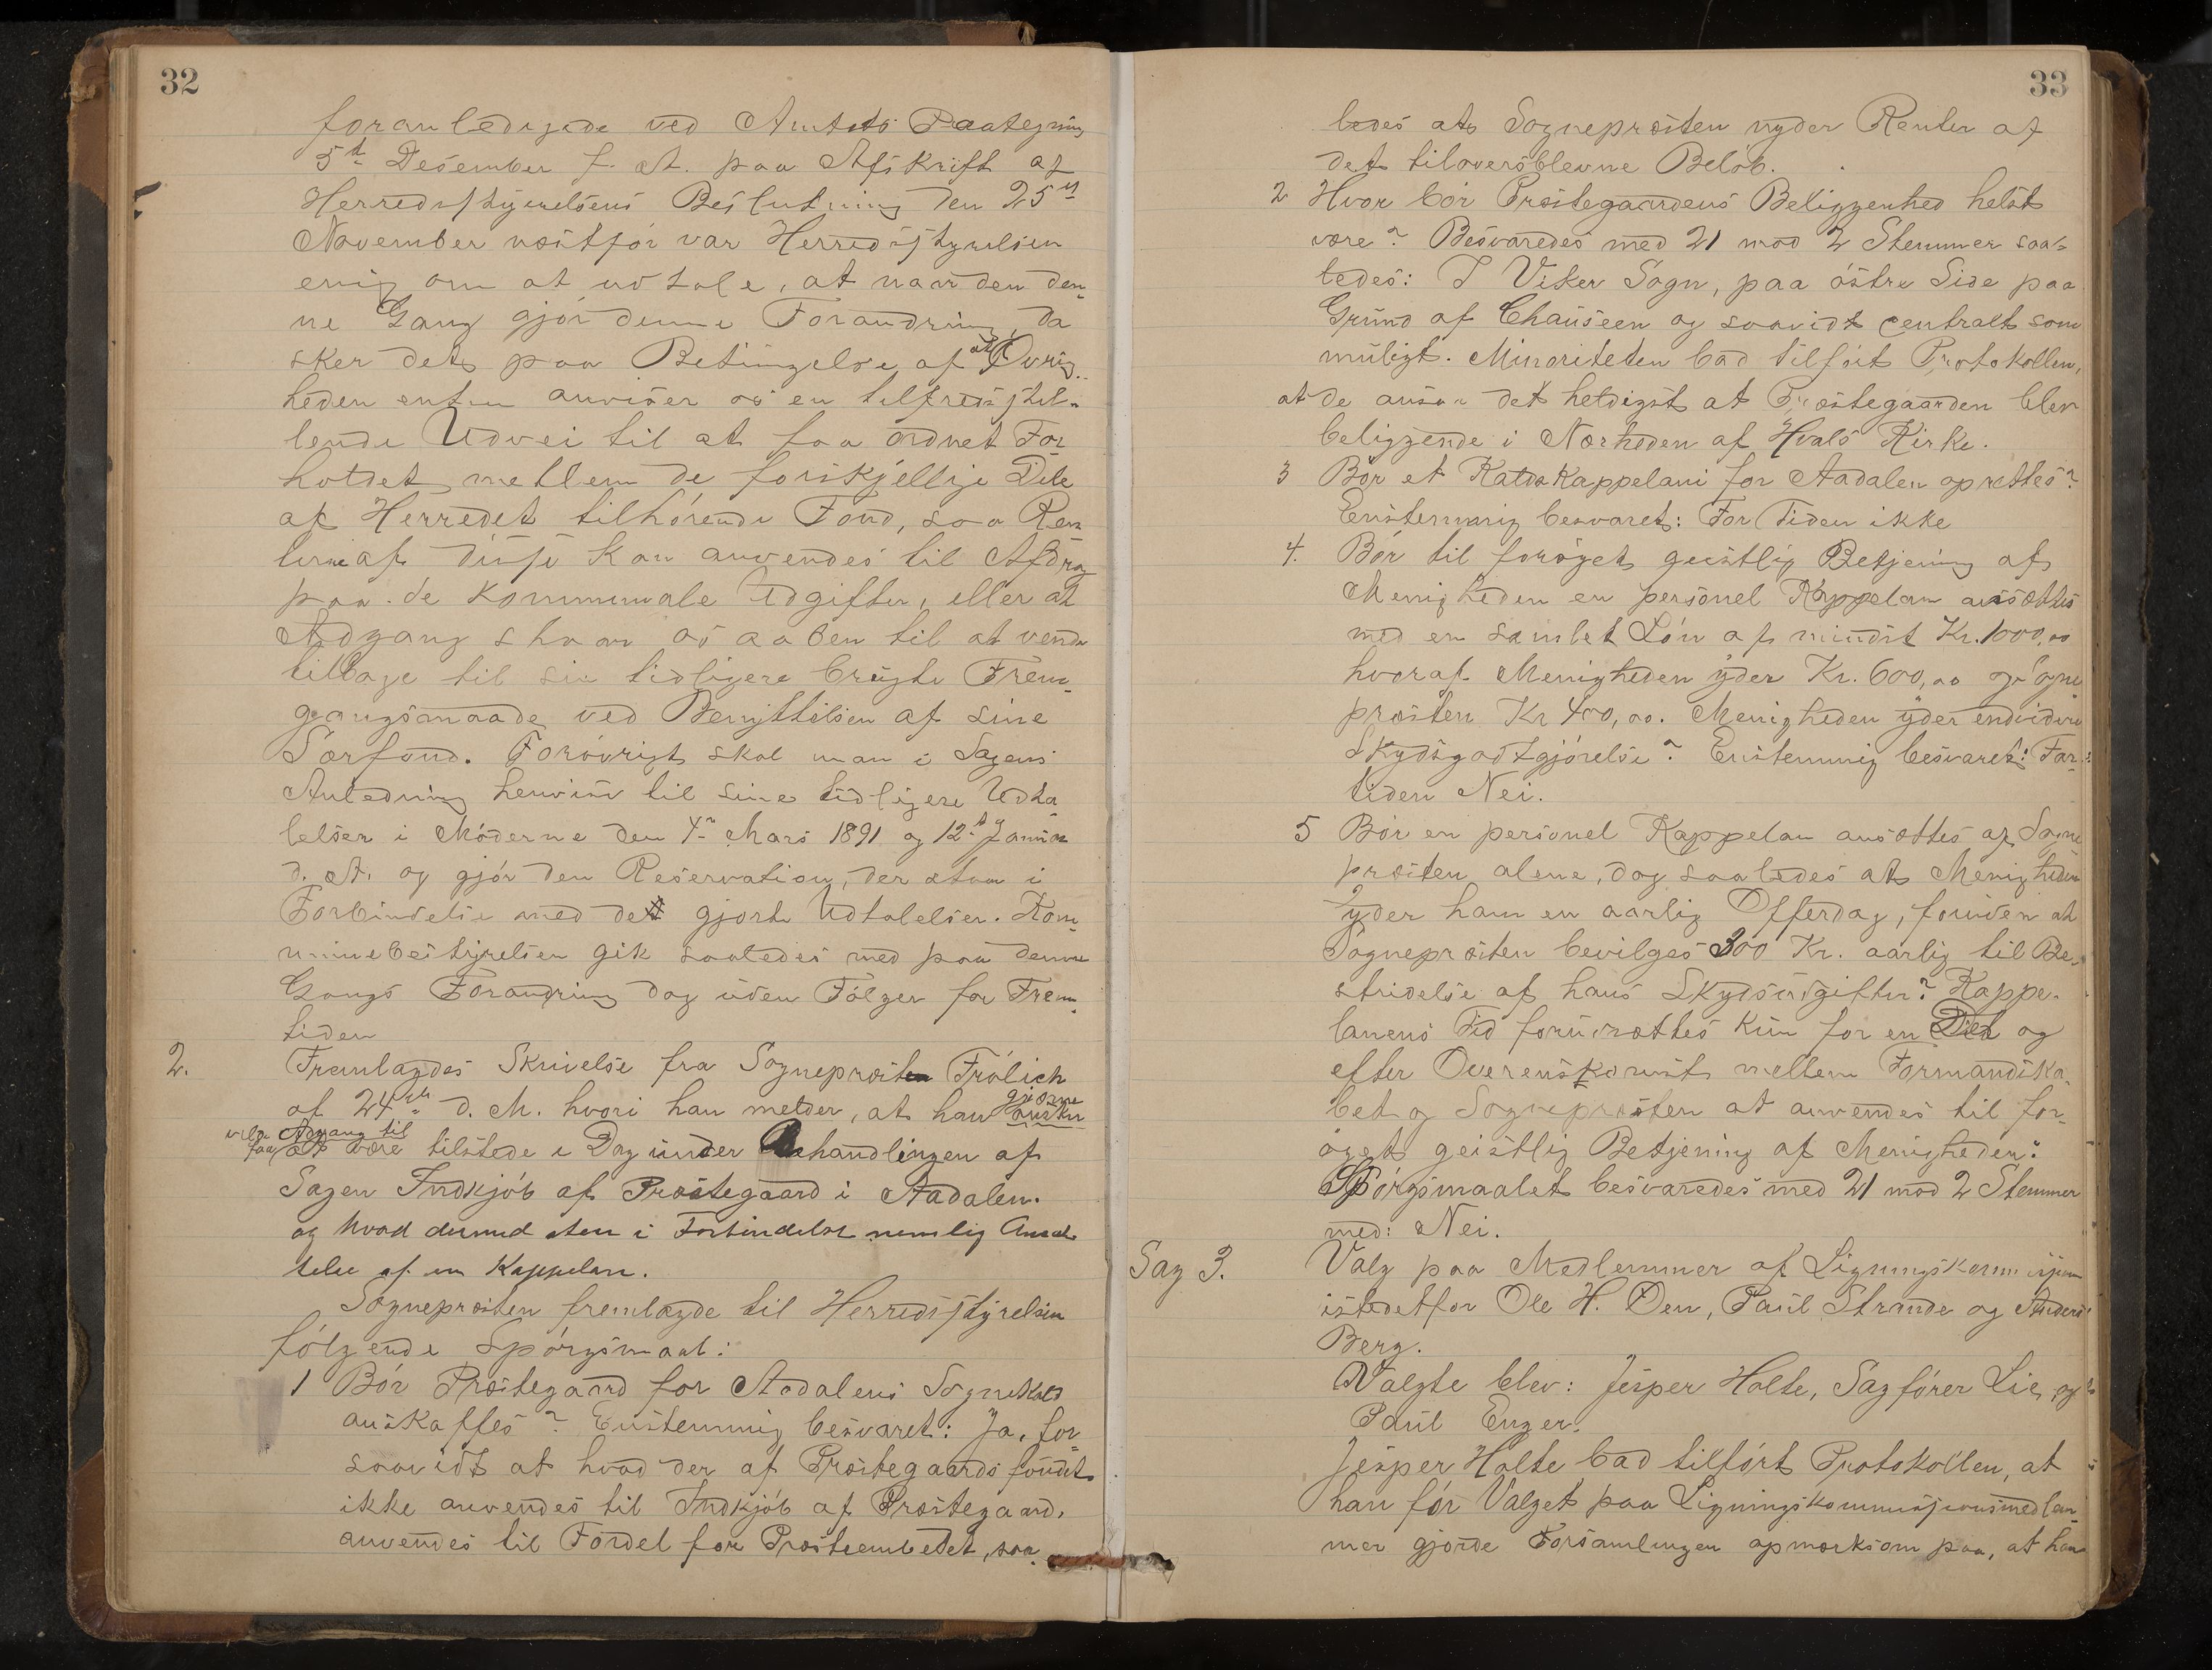 32
foranledigede ved Amtets Paategning
5te Desember f. A. paa Afskrift af
Herredsstyrelsens Beslutning den 25de
November næstfør var Herredsstyrelsen
enig om at udtale, at naar den den-
ne Gang gjør denne Forandring, da
sker det paa Betingelse af at Øvrig-
heden enten anviser os en tilfredsstil-
lende Udvei til at faa ordnet For
holdet mellem de forskjellige Dele
af Herredet tilhørende Fond, saa Ren
terne af disse kan anvendes til Afdrag
paa de kommunale Udgifter, eller at
Adgang staar os aaben til at vende
tilbage til sin tidligere brugte Frem-
gangsmaade ved Benyttelsen af sine
Særfond. Forøvrigt skal man i Sagens
Anledning henvise til sine tidligere Udta
lelser i Møderne den 4de Mars 1891 og 12te Januar
d. A. og gjør den Reservation, der staar i
Forbindelse med det gjorte Udtalelser. Kom-
munebestyrelsen gik saaledes med paa denne
Gangs Forandring dog uden Følger for Frem-
tiden
2. Fremlagdes Skrivelse fra Sognepresten Frölich
af 24de d. M. hvori han melder, at han gjerne ønsker
vilde faa Adgang til
at være tilstede i Dag under Behandlingen af
Sagen Indkjøb af Præstegaard i Aadalen.
og hvad dermed staar i Forbindelse nemlig Ansæt-
telse af en Kappelan.
Sognepræsten fremlagde til Herredsstyrelsen
følgende Spørgsmaal:
1 Bør Præstegaard for Aadalens Sognekald
anskaffes? Enstemmig besvaret: Ja, for
saavidt at hvad der af Præstegaardsfondet
ikke anvendes til Indkjøb af Præstegaard,
anvendes til Fordel for Præsteembedet, saa-
33
ledes at Sognepræsten nyder Renter af
det tiloversblevne Beløb.
2 Hvor bør Præstegaardens Beliggenhed helst
være? Besvaredes med 21 mod 2 Stemmer saa-
ledes: I Viker Sogn, paa østre Side paa
Grund af Chauseen og saavidt centralt som
muligt. Minoriteten bad tilført Protokollen,
at de ansaa det heldigst at Præstegaarden blev
beliggende i Nærheden af Hvals Kirke.
3 Bør et Kaldskappelani for Aadalen oprettes?
Enstemmig besvaret: For Tiden ikke
4. Bør til forøget geistlig Betjening af
Menigheden en personel Kappelan ansættes
med en samlet Løn af mindst Kr. 1000,00
hvoraf Menigheden yder Kr. 600,00 og Sogne
præsten Kr 400,00. Menigheden yder endvidere
Skydsgodtgjørelse? Enstemmig besvaret: For-
tiden Nei.
5 Bør en personel Kappelan ansættes af Sogne
præsten alene, dog saaledes at Menigheden
yder ham en aarlig Offerdag, foruden at
Sognepræsten bevilges 300 Kr. aarlig til Be-
stridelse af hans Skydsudgifter? Kappe-
lanens Tid forudsættes kun for en Del og
efter Overenskomst mellem Formandska-
bet og Sognepræsten at anvendes til for-
øget geistlig Betjening af Menigheden."
Spørgsmaalet besvaredes med 21 mod 2 Stemmer
med: Nei.
Sag 3. Valg paa Medlemmer af Ligningskommissjonen
istedetfor Ole H. Øen, Paul Strande og Anders
Berg.
Valgte blev: Jesper Holte, Sagfører Lie, og
Paul Enger.
Jesper Holte bad tilført Protokollen, at
han før Valget paa Ligningskommisjonsmedlem-
mer gjorde Forsamlingen opmærksom paa, at han